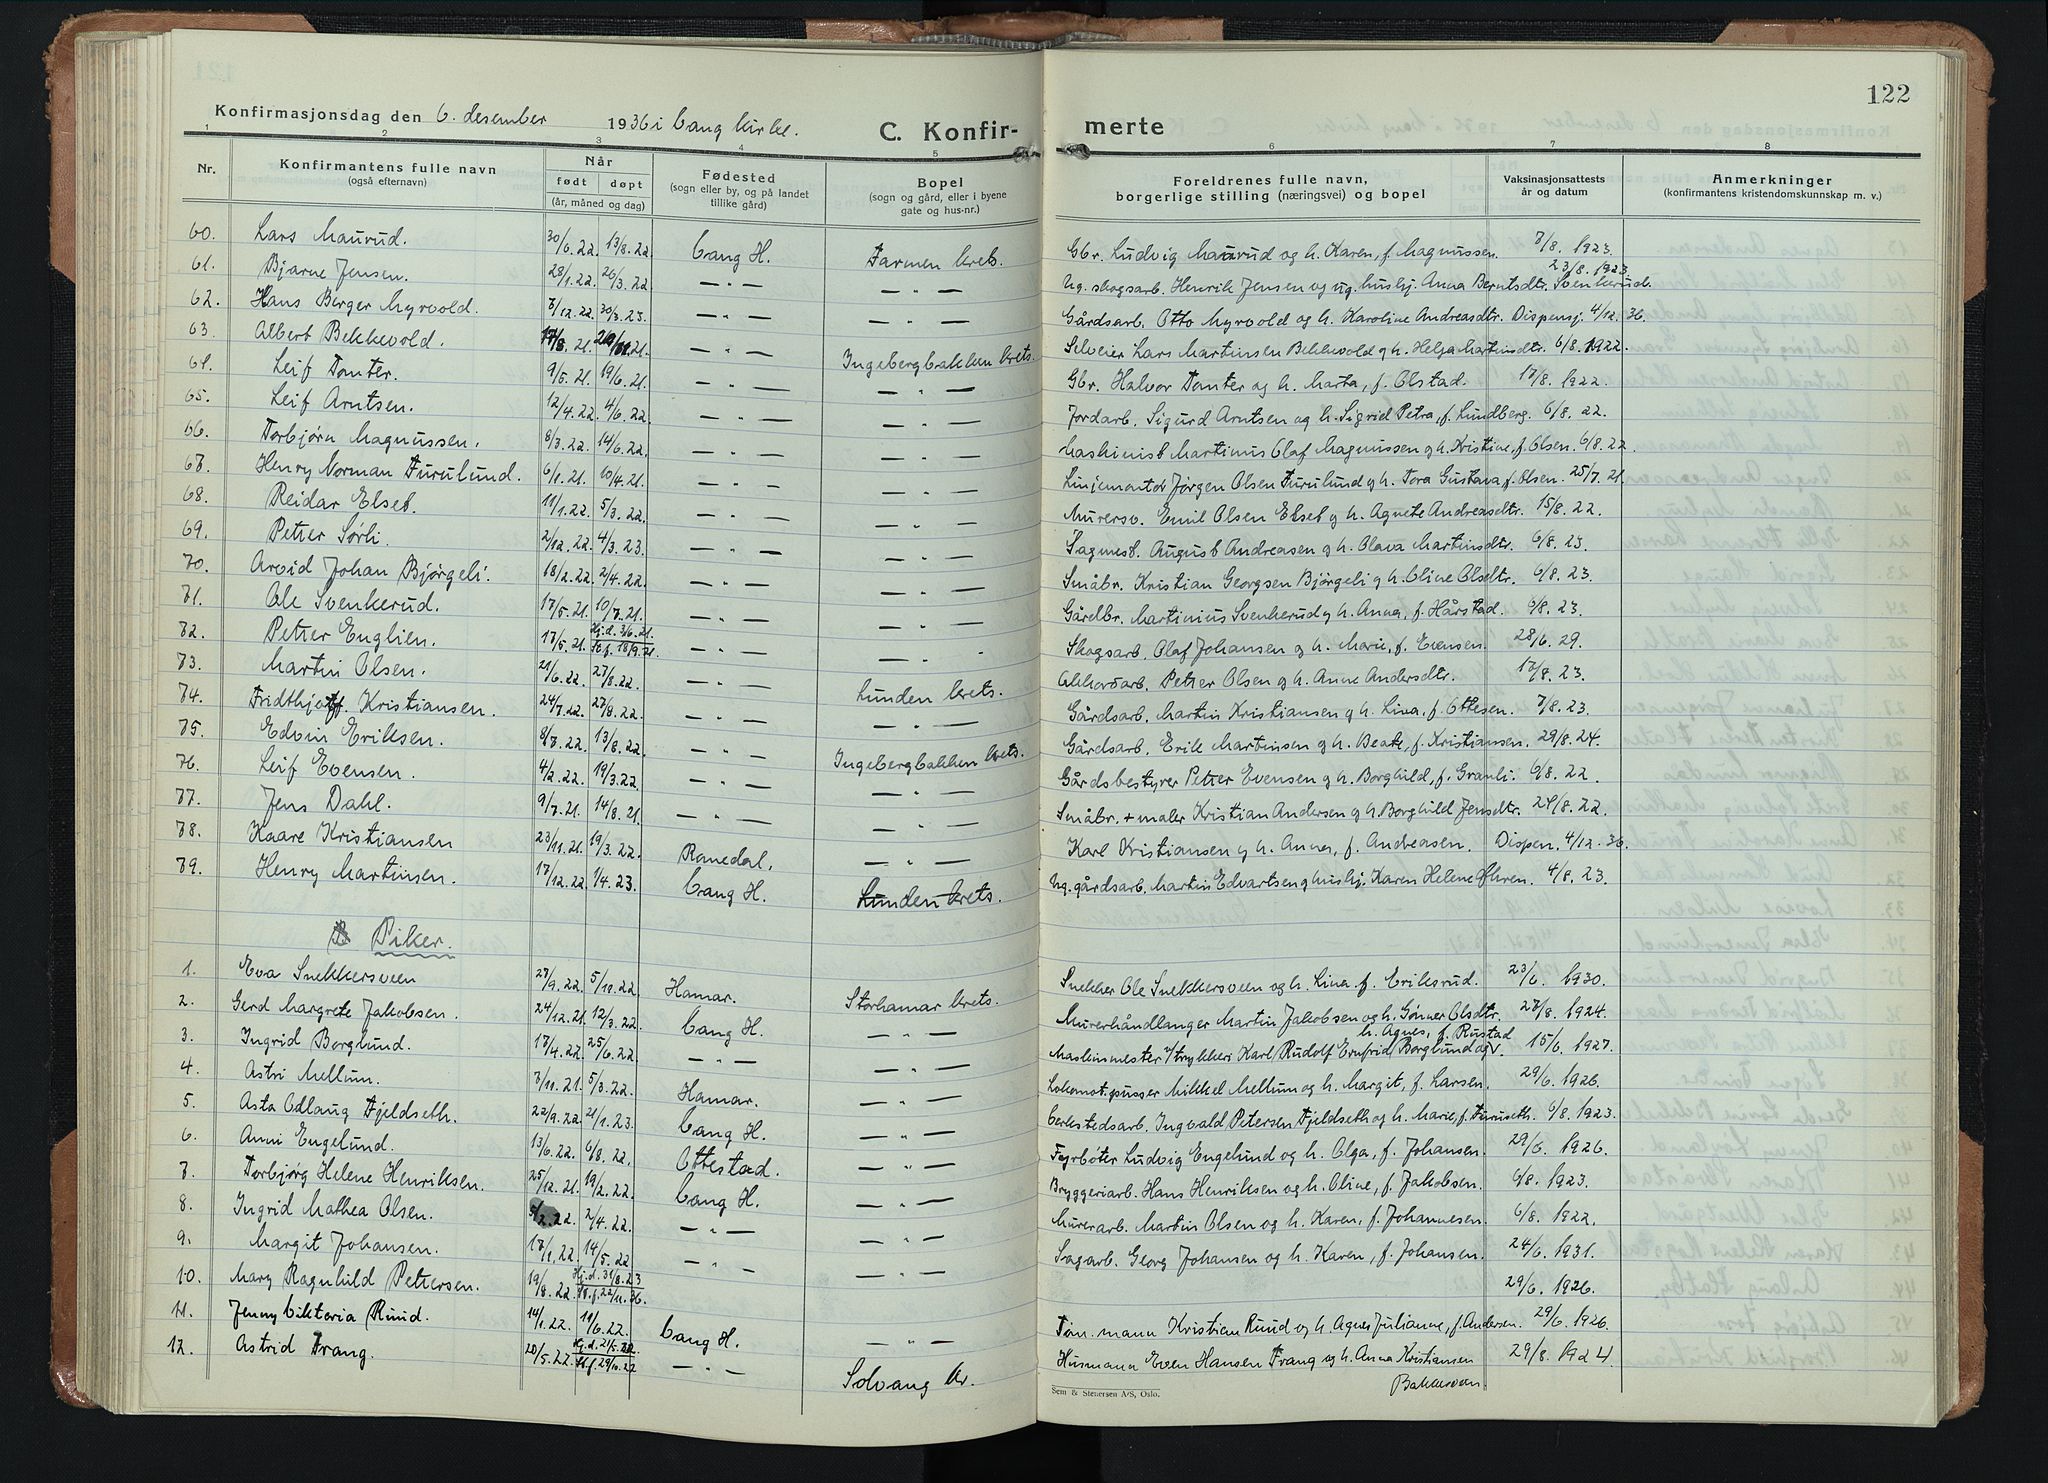 122
Konfirmasjonsdag den 6. desember 1936 i Vang kirke.
C. Konfir- merte
1 2 3 4 5 6 7 8
Nr. Konfirmantens fulle navn (også efternavn) Når født døpt (år, måned og dag) Fødested (sogn eller by, og på landet tillike gård) Bopel (sogn og gård, eller i byene gate og hus-nr.) Foreldrenes fulle navn, borgerlige stilling (næringsvei) og bopel Vaksinasjonsattests år og datum Anmerkninger (konfirmantens kristendomskunnskap m. v.)
60. Lars Maurud. 30/6.22. 13/8.22 Vang H. Farmen krets. Gbr. Ludvig Maurud og h. Karen, f. Magnussen. 7/8. 1923.
61. Bjarne Jensen. 28/1.22. 26/3.22 — " — — " — Ug. skogsarb. Henrik Jensen og ug. hushj. Anna Berntsdtr. Svenkerud. 23/8. 1923
62. Hans Berger Myrvold. 7/12.22. 30/3.23. — " — — " — Gårdsarb. Otto Myrvold og h. Karoline Andreasdtr. Dispensj. 4/12.36.
63. Albert Bekkevold. 21. 21. — " — Ingebergbakken krets. Selveier Lars Martinsen Bekkevold og h. Helga Martinsdtr. 6/8. 1922.
64. Leif Tomter. 9/5.21. 19/6.21. — " — — " — Gbr. Halvor Tomter og h. Marta, f. Olstad. 17/8. 1922.
65. Leif Arntsen. 12/4.22. 4/6.22. — " — — " — Jordarb. Sigurd Arntsen og h. Sigrid Petra, f. Lundberg. 6/8.22.
66. Torbjørn Magnussen. 8/3.22. 14/6.22. — " — — " — Maskinist Martinus Olaf Magnussen og h. Kristine, f. Olsen. 6/8.22.
67. Henry Norman Furulund. 6/1.21. 10/4.21. — " — — " — Linjemontør Jørgen Olsen Furulund og h. Tora Gustava, f. Olsen. 25/7.21.
68. Reidar Elset. 11/1.22. 5/3.22. — " — — " — Murersv. Emil Olsen Elset og h. Agnete Andreasdtr. 15/8.22.
69. Petter Sørli. 2/12.22. 4/3.23. — " — — " — Sagmest. August Andreasen og h. Olava Martinsdtr. 6/8.23.
70. Arvid Johan Bjørgeli. 18/2.22. 2/4.22. — " — — " — Småbr. Kristian Georgsen Bjørgeli og h. Oline Olsdtr. 6/8.23.
71. Ole Svenkerud. 17/5.21. 10/7.21. — " — — " — Gårdbr. Martinius Svenkerud og h. Anna, f. Hårstad. 6/8.23.
72. Petter Englien. 17/5.21. Hj.d. 3/6.21. St.f. 18/9.21. — " — — " — Skogsarb. Olaf Johansen og h. Marie, f. Evensen. 28/6.29.
73. Martin Olsen. 21/6.22. 27/8.22. — " — Lunden krets. Akkordarb. Petter Olsen og h. Anne Andersdtr. 17/8.23.
74. Fridthjoff Kristiansen. 24/7.22. 27/8.22. — " — — " — Gårdsarb. Martin Kristiansen og h. Lina, f. Ottesen. 7/8.23.
75. Edvin Eriksen. 8/7.22. 13/8.22. — " — Ingebergbakken krets. Gårdsarb. Erik Martinsen og h. Beate, f. Kristiansen. 29/8.24.
76. Leif Evensen. 4/2.22. 19/3.22 — " — — " — Gårdsbestyrer Petter Evensen og h. Borghild, f. Granli. 6/8.22.
77. Jens Dahl. 9/7.21. 14/8.21. — " — — " — Småbr. + maler Kristian Andersen og h. Borghild Jensdtr. 24/8.22.
78. Kaare Kristiansen 23/11.21. 19/3.22. Romedal. — " — Karl Kristiansen og h. Anna, f. Andreasen. Dispen. 4/12.36.
79. Henry Martinsen. 17/12.22. 1/4.23. Vang H. Lunden krets. Ug. gårdsarb. Martin Edvartsen og hushj. Karen Helene Øhren. 4/8.23.
Piker.
1. Eva Snekkersveen 27/9.22. 5/10.22 Hamar. Storhamar krets. Snekker Ole Snekkersveen og h. Lina f. Eriksrud. 23/6. 1930.
2. Gerd Margrete Jakobsen. 24/12.21. 12/3.22. Vang H. — " — Murerhåndlanger Martin Jakobsen og h. Gønner Olsdtr. 27/8. 1924.
3. Ingrid Borglund. 17/4.22. 25/6.22 — " — — " — Maskinmester v/trykkeri Karl Rudolf Ernfrid Borglund og h. Agnes, f. Rustad 15/6. 1927.
4. Astri Mellum. 7/11.21. 5/3.22. Hamar. — " — Lokomot.pusser Mikkel Mellum og h. Margit, f. Larsen. 29/6. 1926.
5. Asta Odlaug Fjeldseth. 22/9.22. 21/1.23. Vang H. — " — Verkstedsarb. Ingvald Petersen Fjeldseth og h. Marie, f. Furuseth. 6/8. 1923.
6. Anni Engelund. 13/6.22. 6/8.22. Ottestad. — " — Fyrbøter Ludvig Engelund og h. Olga, f. Johansen. 29/6. 1926.
7. Torbjørg Helene Henriksen. 25/12.21. 19/2.22. Vang H. — " — Bryggeriarb. Hans Henriksen og h. Oline, f. Jakobsen. 6/8. 1923.
8. Ingrid Mathea Olsen. 5/2.22. 2/4.22. — " — — " — Murerarb. Martin Olsen og h. Karen, f. Johannesen. 6/8. 1922.
9. Margit Johansen. 17/1.22. 14/5.22 — " — — " — Sagarb. Georg Johansen og h. Karen, f. Johansen. 24/6. 1931.
10. Mary Ragnhild Pettersen. 19/8.22. Hj.d. 31/8.23 St.f. 22/11.36. — " — 29/6. 1926.
11. Jenny Viktoria Ruud. 14/1.22. 11/6.22. Vang H. — " — Tøm.mann Kristian Ruud og h. Agnes Julianne, f. Andersen. 29/6. 1926.
12. Astrid Frang. 20/5.22. Hj.d. 21/5.22. St.f. 29/6.22 — " — Solvang kr. Husmann Even Hansen Frang og h. Anna Kristiansen Bakkesveen 29/8. 1924.
Sem & Stenersen A/S, Oslo.